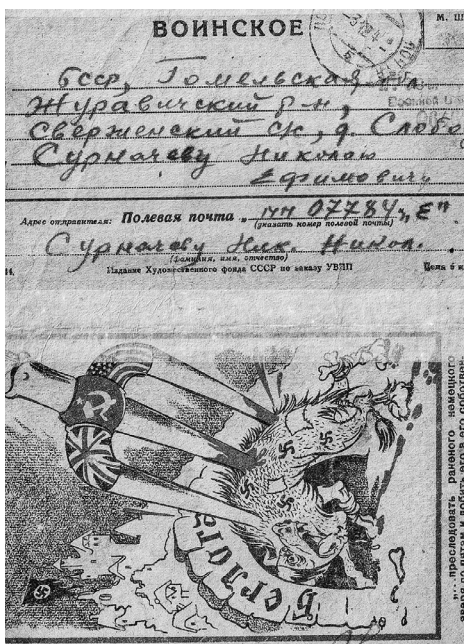 ВОИНСКОЕ
М. Ш
БССР, Гомельская
Журавичский р-н,
Сверженский с/с, д. Слобо
Сурначеву Николаю
Ефимовичу
Адрес отправителя: Полевая почта „ пп 07784 „Е"
(указать номер полевой почты)
Сурначеву Ник. Никол.
(Фамилия, имя, отчество)
Издание Художественного фонда СССР по заказу УВПП
Цена 5 к
Берлога
преследовать раненого немецкого